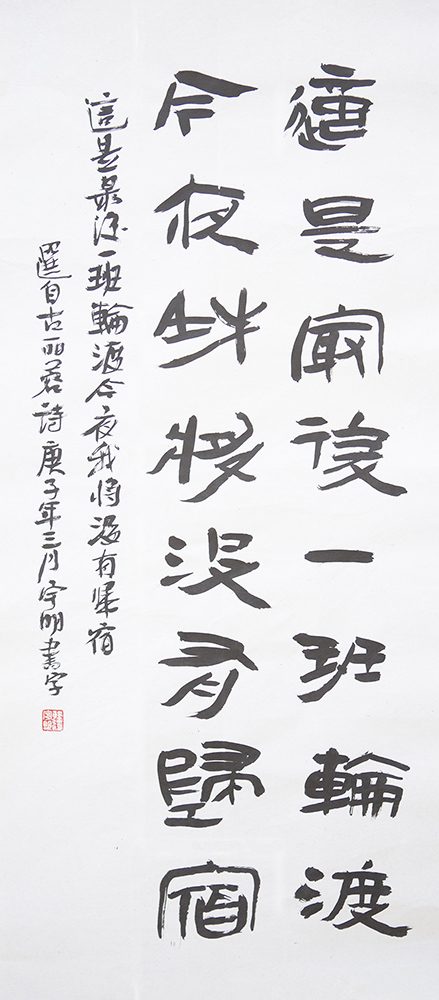 這是最後一班輪渡
今夜我將沒有歸宿
這是最後一班輪渡今夜我將沒有歸宿
選自古丽蓉詩庚子年三月明書字